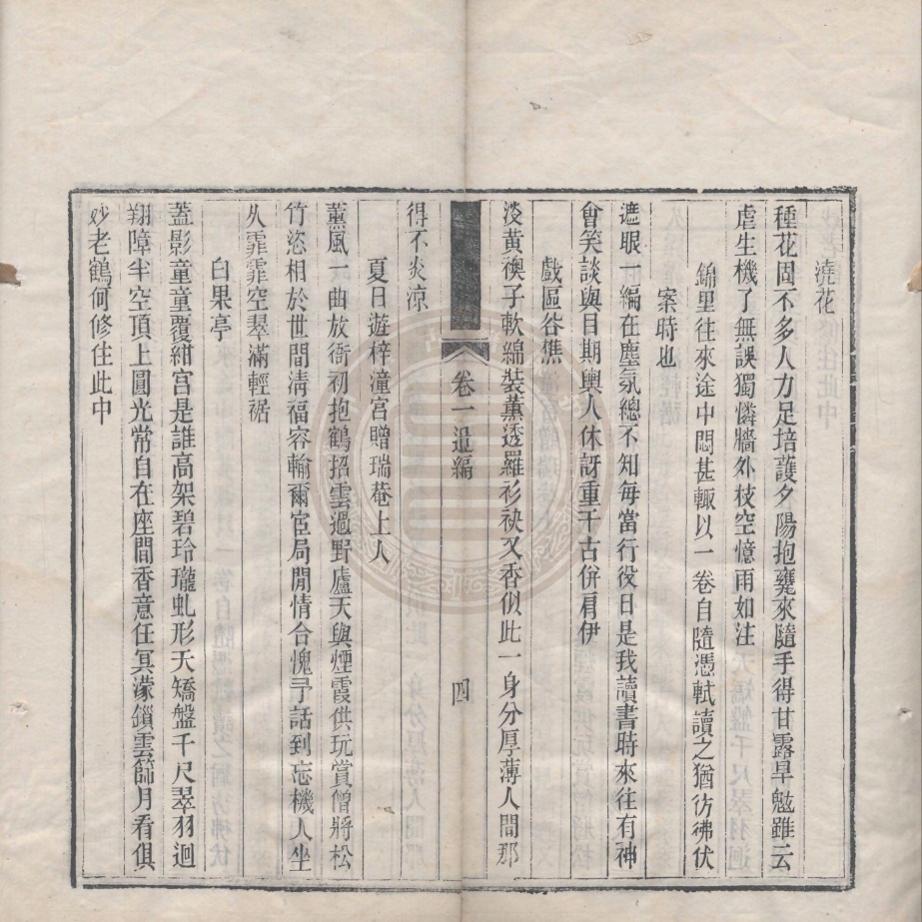 澆花
種花固不多人力足培護夕陽抱甕來隨手得甘露旱魃雖云
虐生機了無誤獨憐牆外枝空憶雨如注
錦里往來途中悶甚輒以一卷自隨憑軾讀之猶彷彿伏
案時也
遮眼一編在塵氛總不知每當行役日是我讀書時來往有神
會笑談與目期輿人休訝重千古併肩伊
戲區谷樵
淡黃襖子軟綿裝薰透羅衫袂又香似此一身分厚薄人間那
卷一 編
四
得不炎涼
夏日遊梓潼宮贈瑞菴上人
薰風一曲放衙初抱鶴招雲過野廬天與煙霞供玩賞僧將松
竹恣相於世間清福容輸爾宦局閒情合愧予話到忘機人坐
久霏霏空翠滿輕裾
白果亭
蓋影童童覆紺宮是誰高架碧玲瓏虬形天矯盤千尺翠羽迴
翔障半空頂上圓光常自在座間香意任冥濛鎖雲篩月看俱
妙老鶴何修住此中